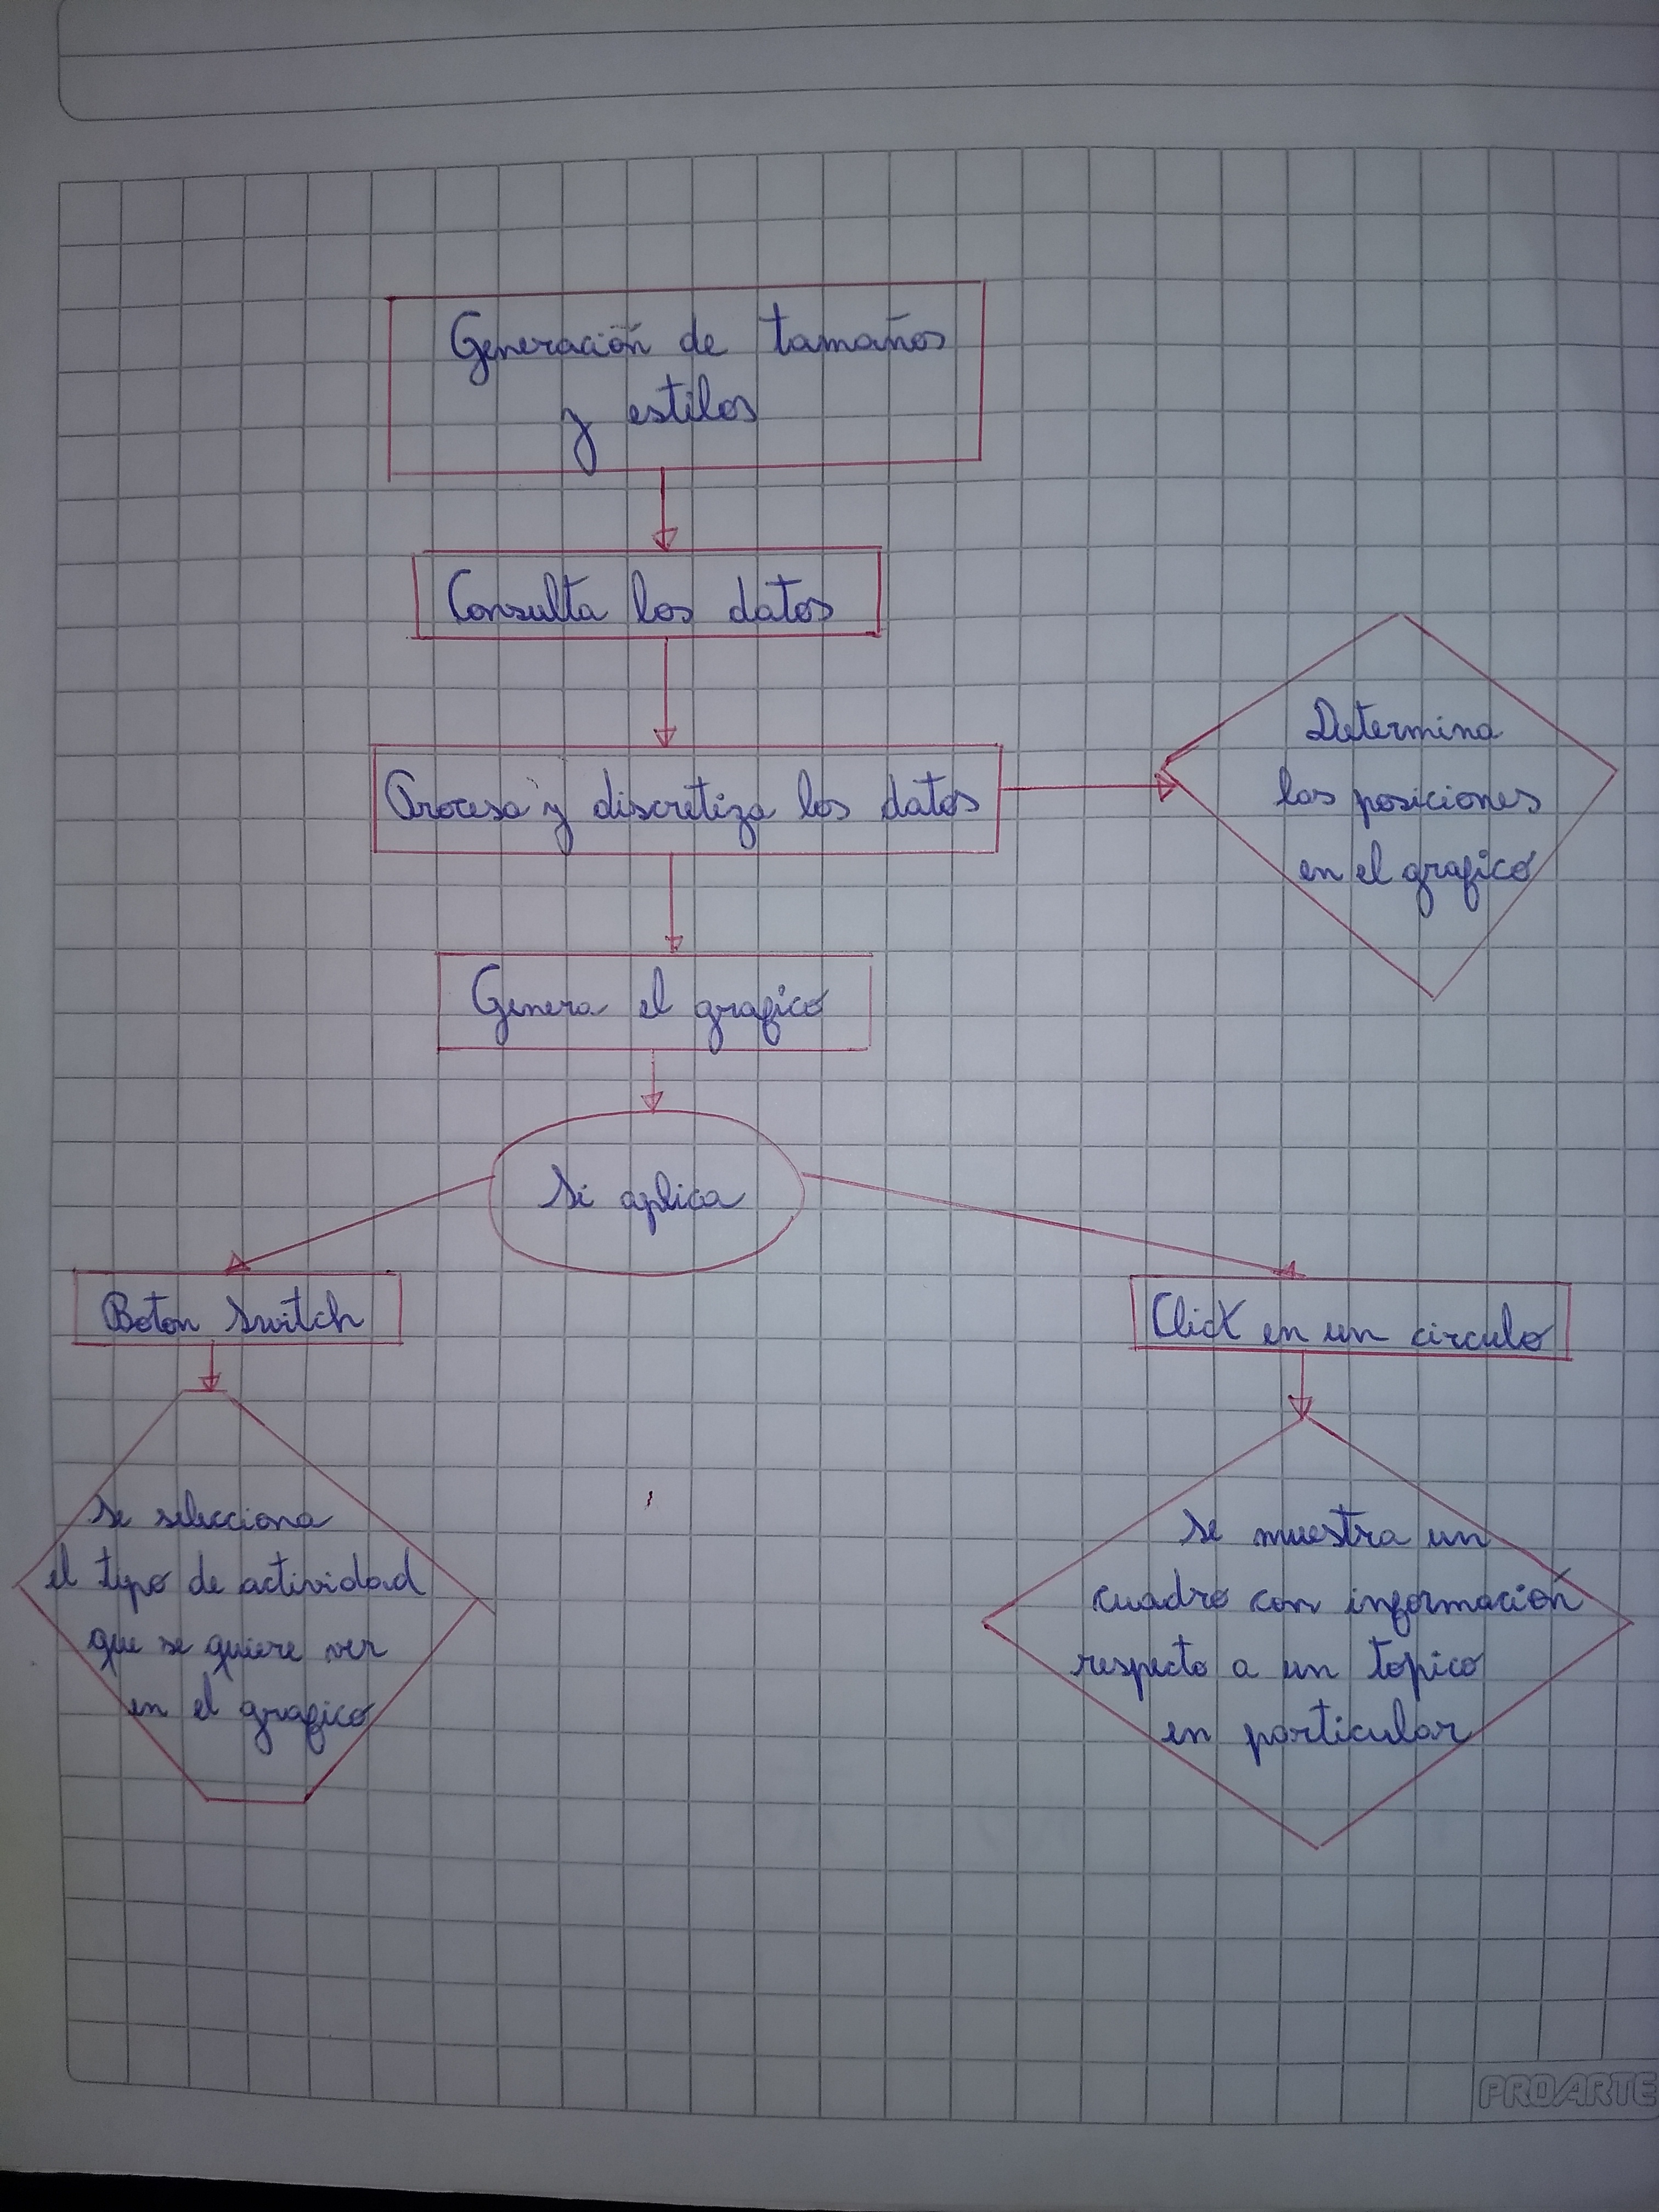 Generación de tamaños
y estilos
Consulta los datos
Procesa y discretiza los datos
Determina
las posiciones
en el grafico
Genera el grafico
Si aplica
Boton Switch
Click en un circulo
Se selecciona
el tipo de actividad
que se quiere ver
en el grafico
Se muestra un
cuadro con información
respecto a un topico
en particular
PROARTE